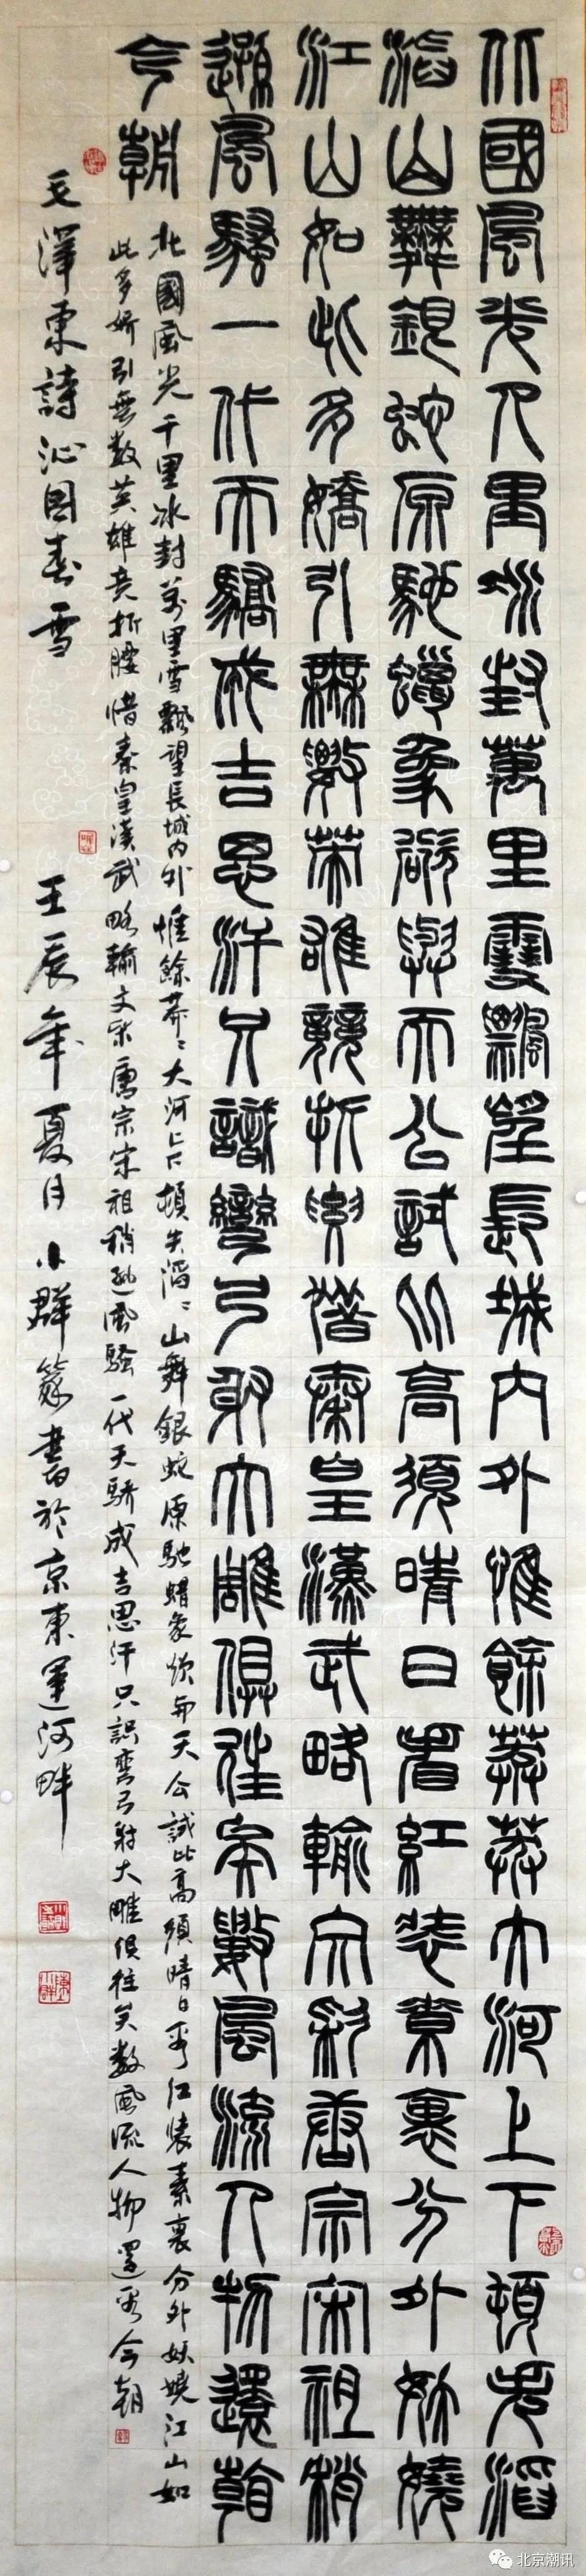 北國風光千里冰封萬里雪飄望長城內外惟餘莽莽大河上下頓失滔
滔山舞銀蛇原馳蠟象欲與天公試比高須晴日看紅裝素裹分外妖嬈
江山如此多嬌引無數英雄競折腰惜秦皇漢武略輸文彩唐宗宋祖稍
遜風騷一代天驕成吉思汗只識彎弓射大雕俱往矣數風流人物還看
今朝
北國風光千里冰封萬里雪飄望長城內外惟餘莽〻大河上下頓失滔〻山舞銀蛇原馳蜡象欲与天公試比高須晴日看红裝素裹分外妖嬈江山如
此多娇引無数英雄竞折腰惜秦皇漢武略輸文采唐宗宋祖稍逊風騷一代天驕成吉思汗只識彎弓射大雕俱往矣数風流人物還看今朝
毛澤東詩沁园春雪 壬辰年夏月小群篆書於京東運河畔
北京潮讯